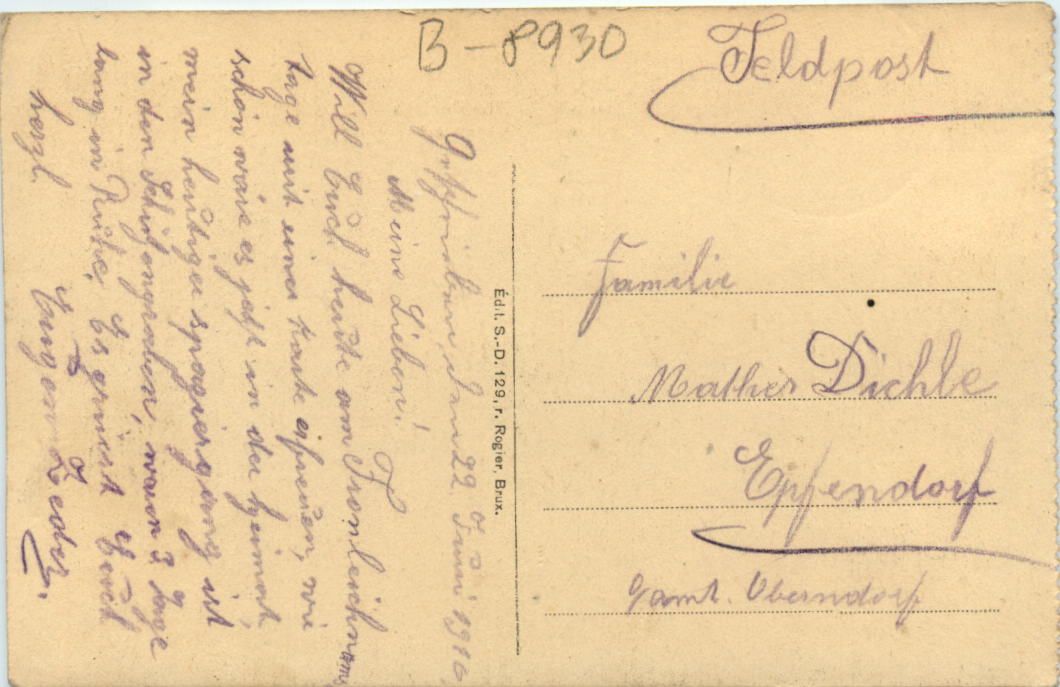 B-8930
Feldpost
Familie
Mathes Dichle
Epfendorf
Oberndorf
Édit. S.-D. 129, r. Rogier, Brux.
den 22. Juni 1916.
Meine Lieben!
Will Euch heute am Fronleichnams
tage mit einer Karte erfreuen, wie
schön wäre es jetzt in der Heimat,
mein heutiger spaziergang ist
in den Schützengraben, waren 3 Tage
lang in Ruhe. Es grüsst Euch
herzl. Eugen